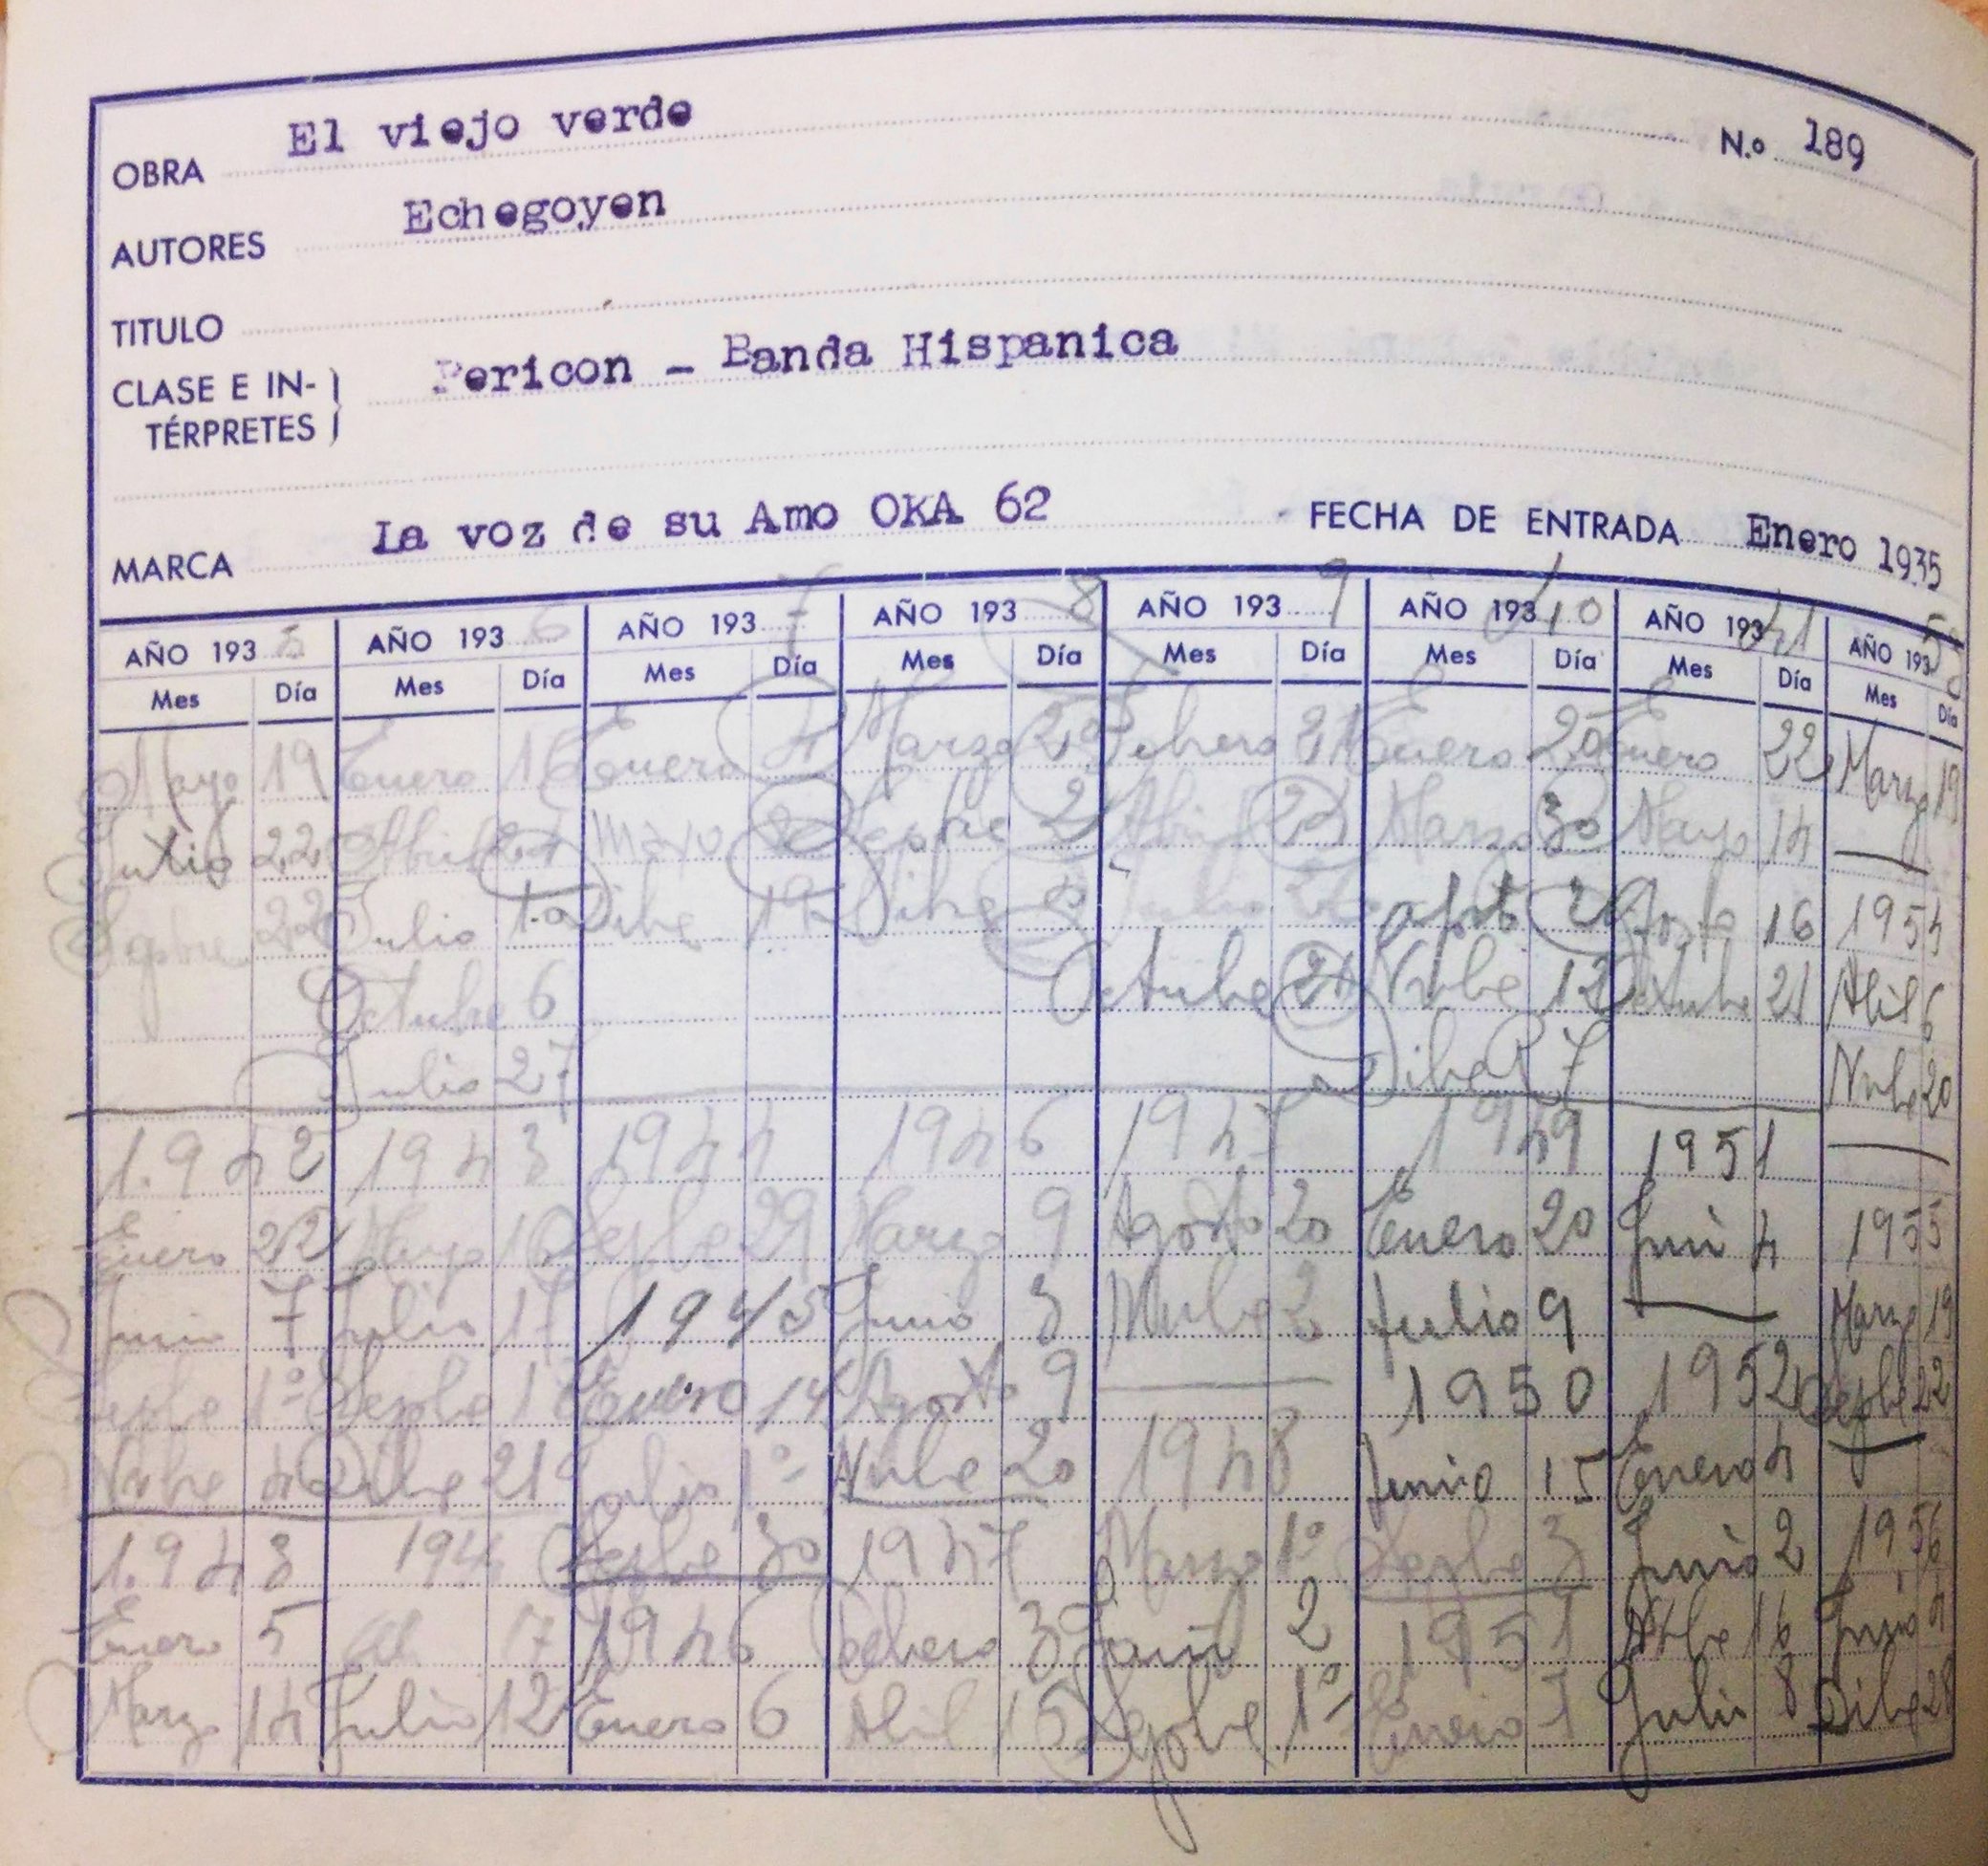 El viejo verde
OBRA N.o 189
Echegoyen
AUTORES
TITULO
CLASE E IN- Pericon - Banda Hispanica
TÉRPRETES
La voz de su Amo OKA 62
MARCA FECHA DE ENTRADA Enero 1935
AÑO 1935 AÑO 1936 AÑO 1937 AÑO 1938 AÑO 1939 AÑO 193 40 AÑO 193 41 AÑO 193 53
Mes Día Mes Día Mes Día Mes Día Mes Día Mes Día Mes Día Mes Día
Mayo 19 Enero 16 Enero Marzo 20 Febrero 21 Enero 20 Enero 22 Marzo 19
Julio 22 Abril 24 Mayo Sepbre 2 Abril 24 Marzo 30 Mayo 14
Sepbre 22 Julio 1o Dibe 19 Dibre Julio Agosto 16 1954
Octubre 6 Octubre 21 Nvbe 12 Octubre 21 Abil 6
Julio 27 Dibe 7 Nvbe 20
1.942 1943 1944 1946 1947 1949 1951
Enero 22 Mayo 16 Sepbe 29 Marzo 9 Agosto 20 Enero 20 Juni 4 1955
Junio 7 Julio 17 1945 Junio 3 Nvbe 2 Julio 9 Marzo 19
Sepbe 1º Sepbe 17 Enero 14 Agosto 9 1950 1952 Sepbe 22
Nvbe 4 Dibe 21 Julio 1º Nvbe 20 1948 Junio 15 Enero 4
1.943 1944 Sepbe 30 1947 Marzo 1º Sepbe 3 Junio 2 1956
Enero 5 Ab 17 1946 Febrero 3 Juni 2 1951 16 Junio 9
Marzo 14 Julio 12 Enero 6 Abil 15 Sepbe 1º Enero 7 Julio 8 Dibe 28